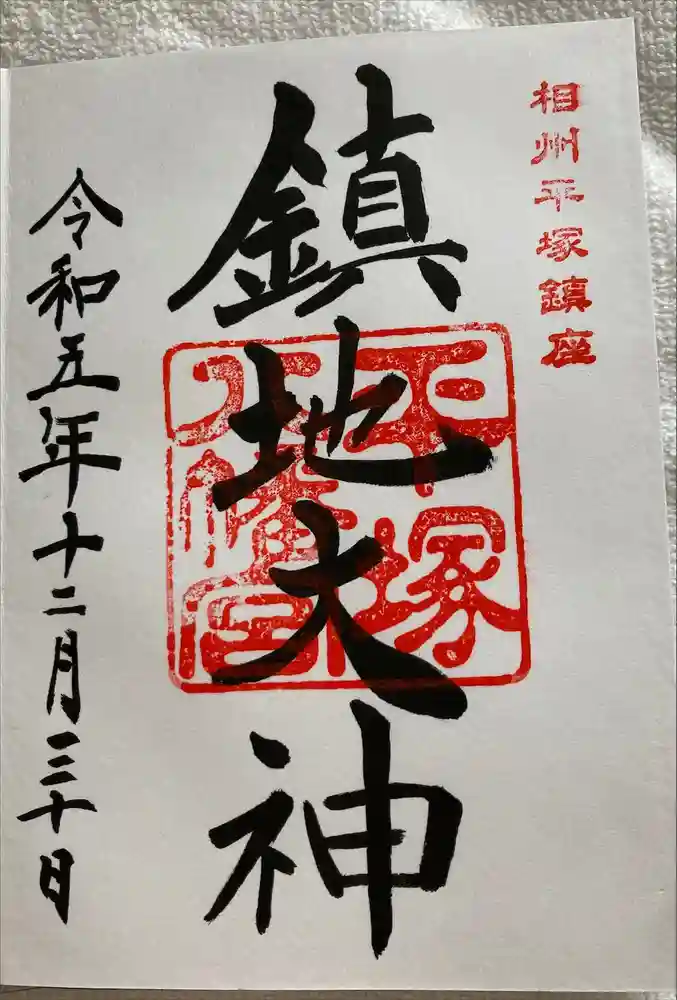 相州平塚鎮座
鎮地大神
平塚
八幡宮
令和五年十二月三十日